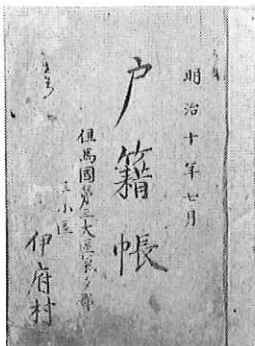 明治十年七月
户籍帳
但馬國第三大區氣多郡
三小區
伊府村